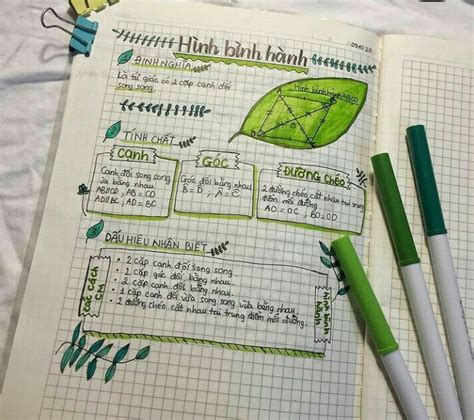 Hình bình hành
ĐỊNH NGHĨA
Là tứ giác có 2 cặp cạnh đối
song song.
Hình bình hành
TÍNH CHẤT
CẠNH
Cạnh đối song song
và bằng nhau
AB//CD, AB = CD
AD//BC, AD = BC
GÓC
Góc đối bằng nhau
B = D, A = C
ĐƯỜNG CHÉO
2 đường chéo cắt nhau tại trung
điểm mỗi đường.
AO = OC, BO = OD
DẤU HIỆU NHẬN BIẾT
CÁC CÁCH
CM
• 2 cặp cạnh đối song song.
• 2 cặp góc đối bằng nhau.
• 2 cặp cạnh đối bằng nhau.
• 1 cặp cạnh đối vừa song song vừa bằng nhau
• 2 đường chéo cắt nhau tại trung điểm mỗi đường.
hình bình
hành